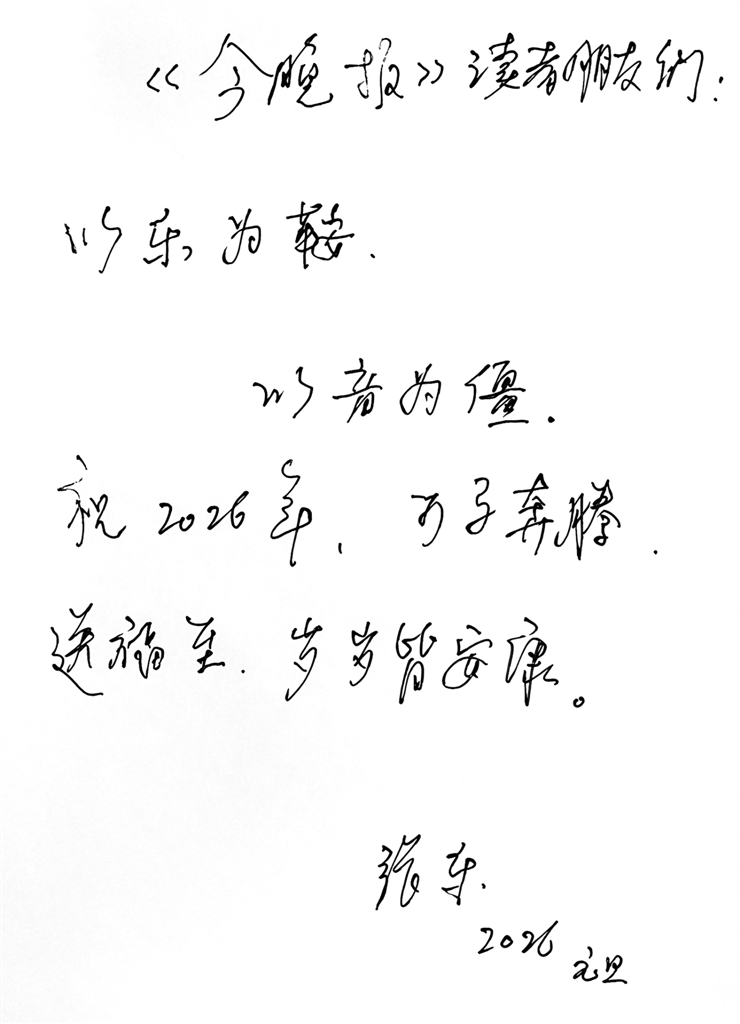 《今晚报》读者朋友们:
以乐为鞍.
以音为僵.
祝2026年, 万马奔腾.
送福至. 岁岁皆安康。
张东.
2026 元旦